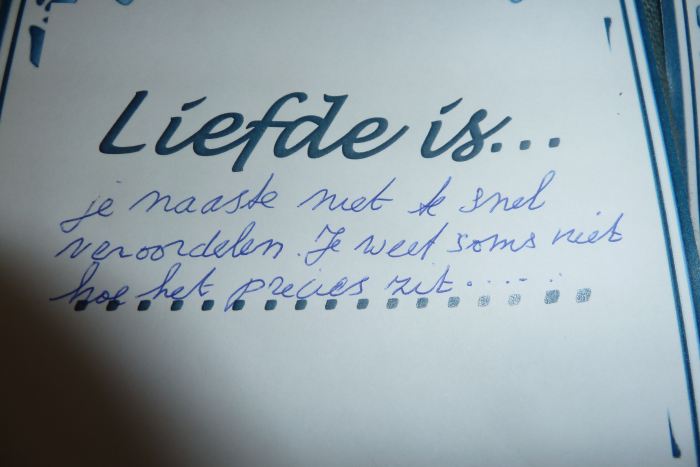 Liefde is...
je naaste niet te snel
veroordelen. Je weet soms niet
hoe het precies zit......